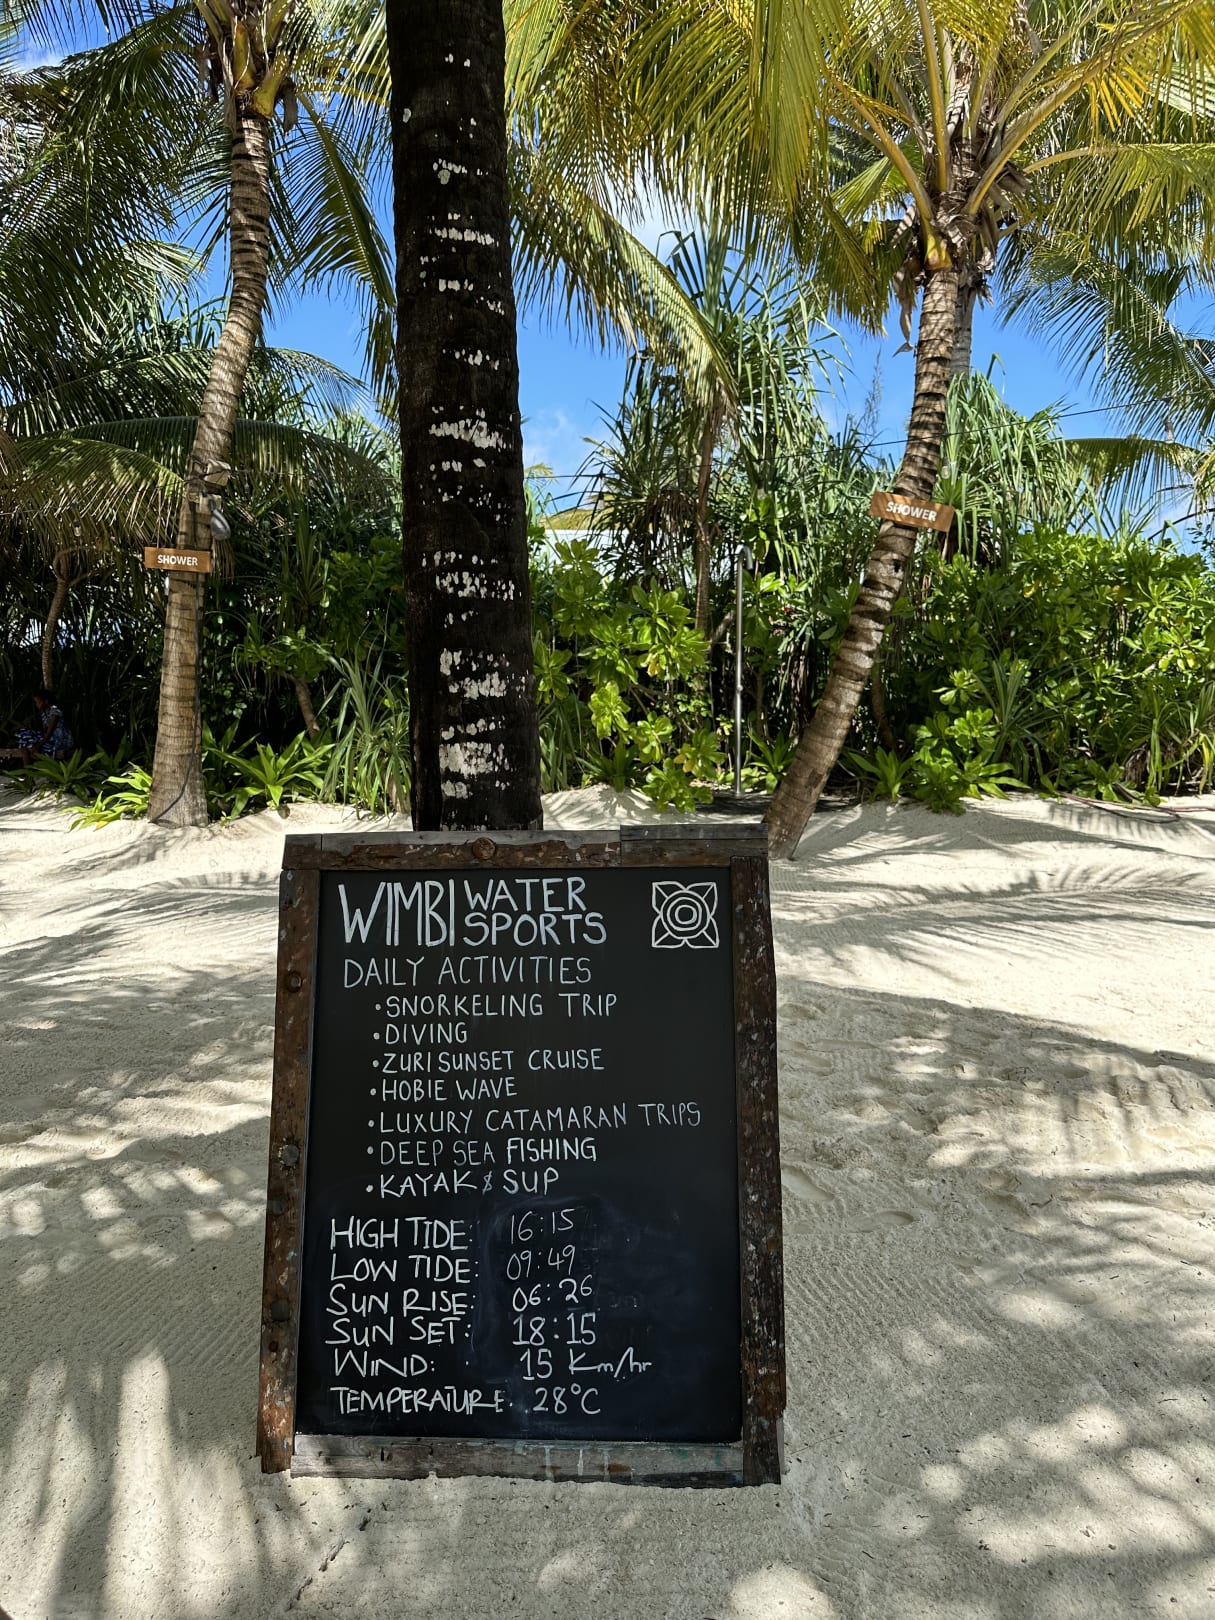 SHOWER
SHOWER
WIMBI WATER SPORTS
DAILY ACTIVITIES
• SNORKELING TRIP
• DIVING
• ZURI SUNSET CRUISE
• HOBIE WAVE
• LUXURY CATAMARAN TRIPS
• DEEP SEA FISHING
• KAYAK & SUP
HIGH TIDE: 16:15
LOW TIDE: 09:49
SUN RISE: 06:26
SUN SET: 18:15
WIND: 15 Km/hr
TEMPERATURE: 28°C